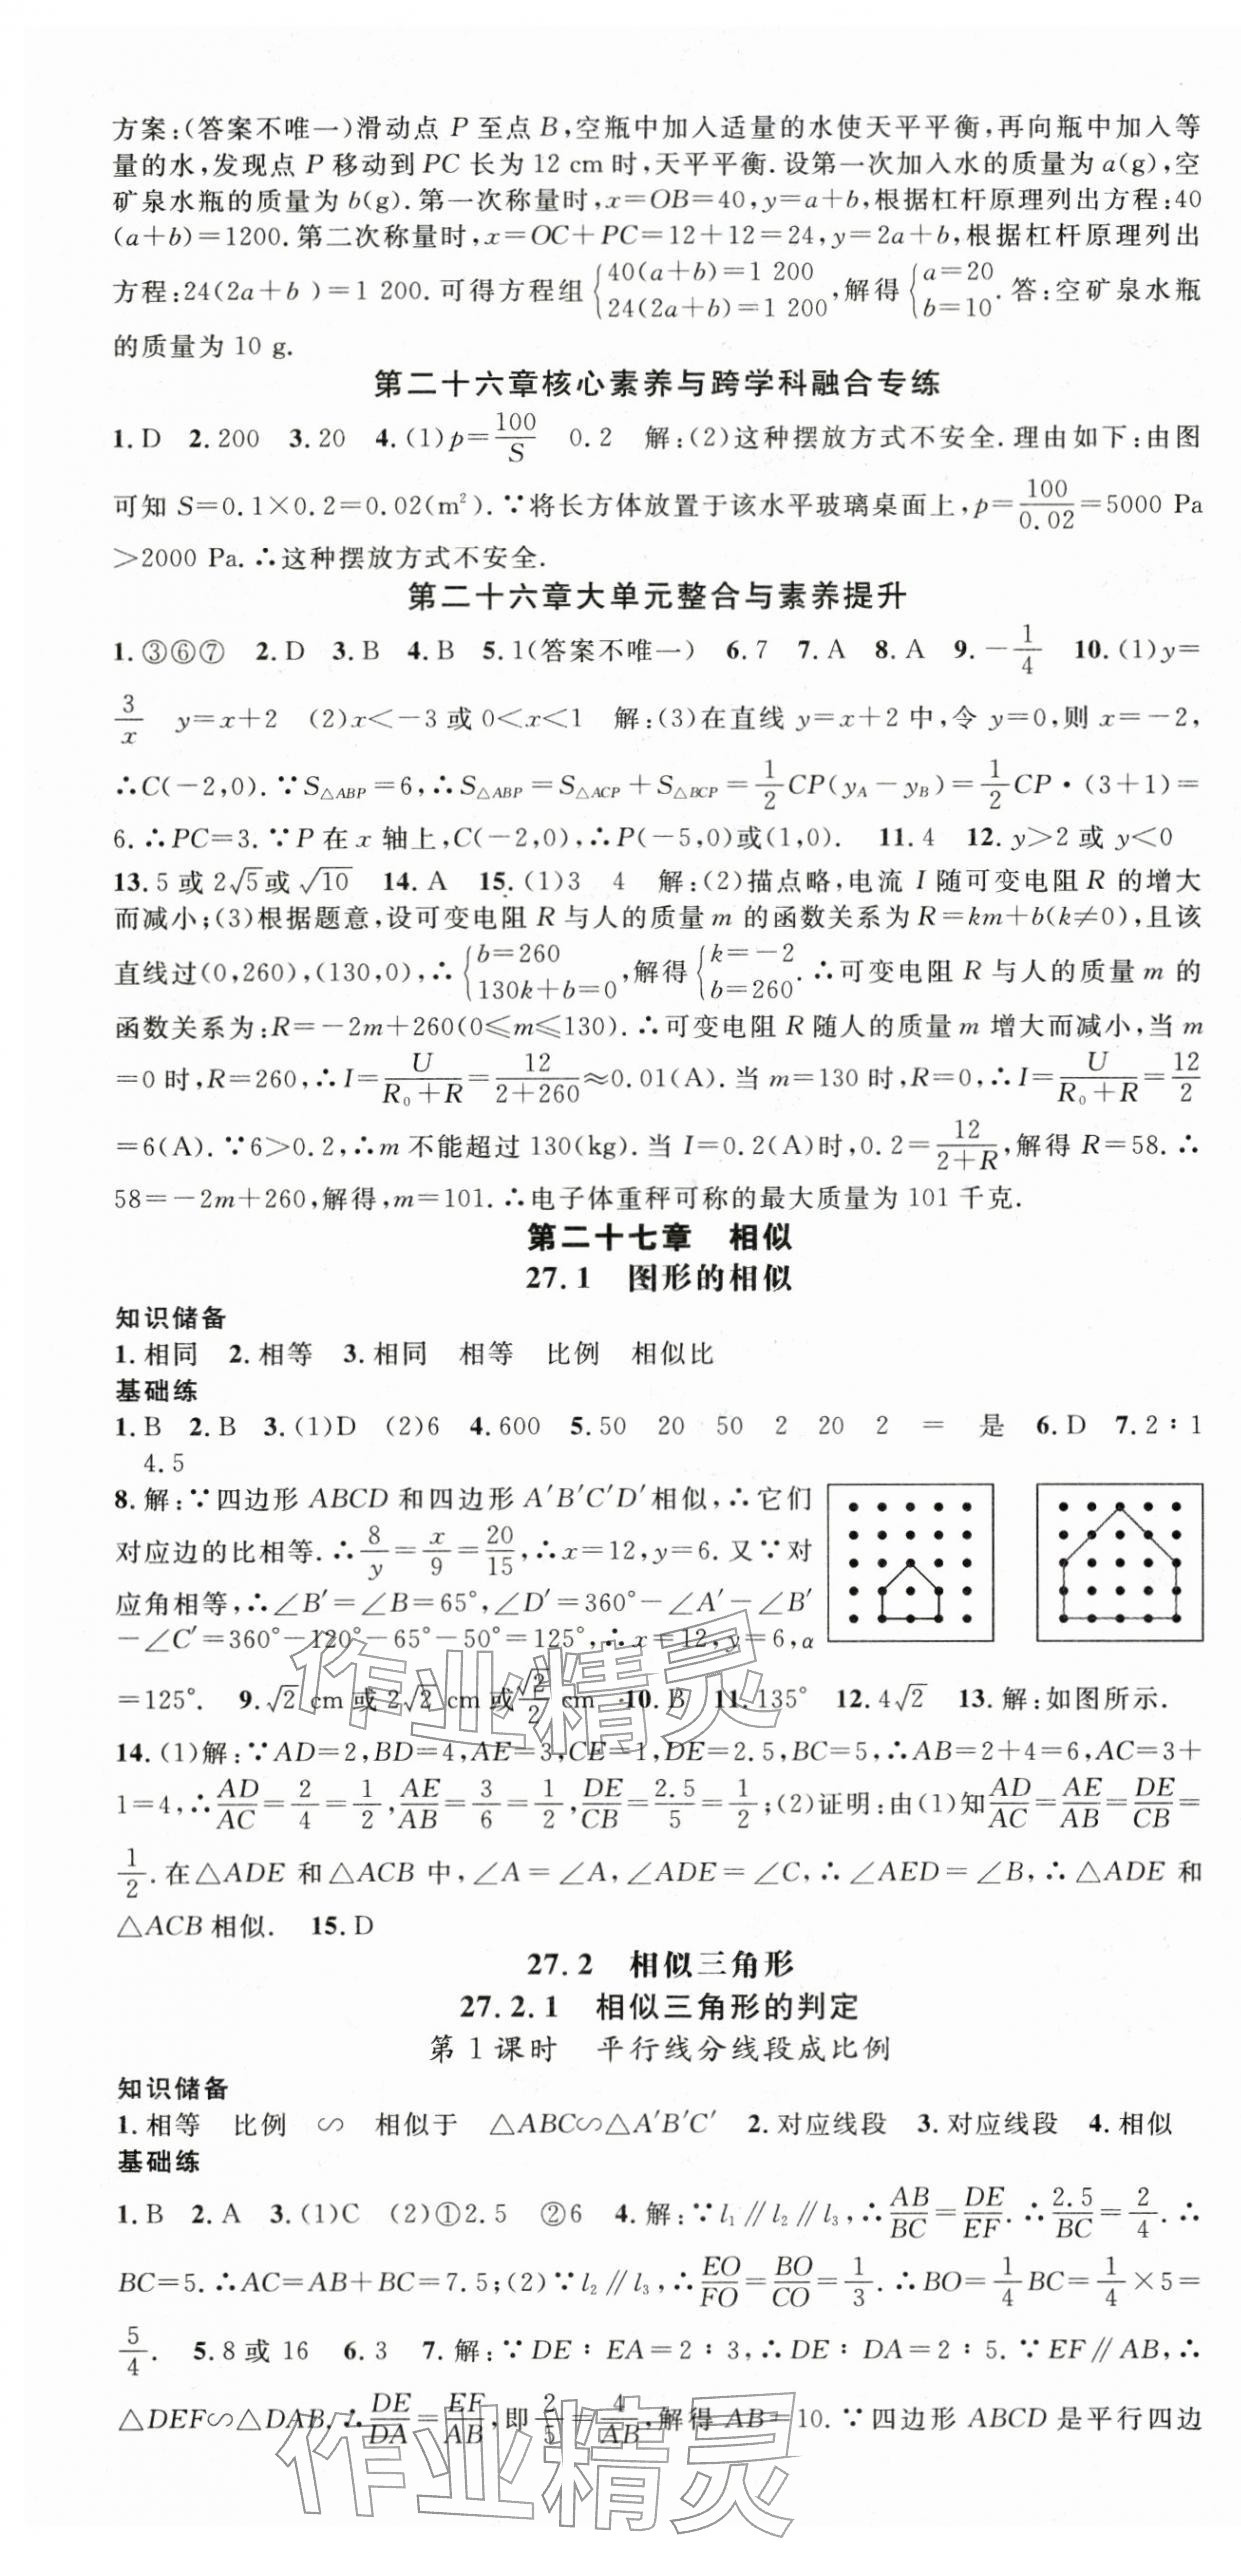 方案:(答案不唯一)滑动点 P 至点 B,空瓶中加入适量的水使天平平衡,再向瓶中加入等
量的水,发现点 P 移动到 PC 长为 12 cm 时,天平平衡.设第一次加入水的质量为 a(g),空
矿泉水瓶的质量为 b(g).第一次称量时,x=OB=40,y=a+b,根据杠杆原理列出方程:40
(a+b)=1200.第二次称量时,x=OC+PC=12+12=24,y=2a+b,根据杠杆原理列出
方程:24(2a+b )=1 200.可得方程组{40(a+b)=1 200 24(2a+b)=1 200,解得{a=20 b=10.答:空矿泉水瓶
的质量为 10 g.
第二十六章核心素养与跨学科融合专练
1.D 2.200 3.20 4.(1)p=100/S 0.2 解:(2)这种摆放方式不安全.理由如下:由图
可知 S=0.1×0.2=0.02(m²).∵将长方体放置于该水平玻璃桌面上,p=100/0.02=5000 Pa
>2000 Pa.∴这种摆放方式不安全.
第二十六章大单元整合与素养提升
1.③⑥⑦ 2.D 3.B 4.B 5.1(答案不唯一) 6.7 7.A 8.A 9.-1/4 10.(1)y=
3/x y=x+2 (2)x<-3 或 0<x<1 解:(3)在直线 y=x+2 中,令 y=0,则 x=-2,
∴C(-2,0).∵S△ABP=6,∴S△ABP=S△ACP+S△BCP=1/2CP(yA-yB)=1/2CP·(3+1)=
6.∴PC=3.∵P 在 x 轴上,C(-2,0),∴P(-5,0)或(1,0). 11.4 12.y>2 或 y<0
13.5 或 2√5或√10 14.A 15.(1)3 4 解:(2)描点略,电流 I 随可变电阻 R 的增大
而减小;(3)根据题意,设可变电阻 R 与人的质量 m 的函数关系为 R=km+b(k≠0),且该
直线过(0,260),(130,0),∴{b=260 130k+b=0,解得{k=-2 b=260.∴可变电阻 R 与人的质量 m 的
函数关系为:R=-2m+260(0≤m≤130).∴可变电阻 R 随人的质量 m 增大而减小,当 m
=0 时,R=260,∴I=U/(R₀+R)=12/(2+260)≈0.01(A).当 m=130 时,R=0,∴I=U/(R₀+R)=12/2
=6(A).∵6>0.2,∴m 不能超过 130(kg).当 I=0.2(A)时,0.2=12/(2+R),解得 R=58.∴
58=-2m+260,解得,m=101.∴电子体重秤可称的最大质量为 101 千克.
第二十七章 相似
27.1 图形的相似
知识储备
1.相同 2.相等 3.相同 相等 比例 相似比
基础练
1.B 2.B 3.(1)D (2)6 4.600 5.50 20 50 2 20 2 = 是 6.D 7.2∶1
4.5
8.解:∵四边形 ABCD 和四边形 A′B′C′D′相似,∴它们
对应边的比相等.∴8/y=x/9=20/15,∴x=12,y=6.又∵对
应角相等,∴∠B′=∠B=65°,∠D′=360°-∠A′-∠B′
-∠C′=360°-120°-65°-50°=125°,∴x=12,y=6,α
=125°. 9.√2 cm 或 2√2 cm 或 √2/2 cm 10.B 11.135° 12.4√2 13.解:如图所示.
14.(1)解:∵AD=2,BD=4,AE=3,CE=1,DE=2.5,BC=5,∴AB=2+4=6,AC=3+
1=4,∴AD/AC=2/4=1/2,AE/AB=3/6=1/2,DE/CB=2.5/5=1/2;(2)证明:由(1)知AD/AC=AE/AB=DE/CB=
1/2.在△ADE 和△ACB 中,∠A=∠A,∠ADE=∠C,∴∠AED=∠B,∴△ADE 和
△ACB 相似. 15.D
27.2 相似三角形
27.2.1 相似三角形的判定
第 1 课时 平行线分线段成比例
知识储备
1.相等 比例 ∽ 相似于 △ABC∽△A′B′C′ 2.对应线段 3.对应线段 4.相似
基础练
1.B 2.A 3.(1)C (2)①2.5 ②6 4.解:∵l₁∥l₂∥l₃,∴AB/BC=DE/EF.∴2.5/BC=2/4.∴
BC=5.∴AC=AB+BC=7.5;(2)∵l₂∥l₃,∴EO/FO=BO/CO=1/3.∴BO=1/4BC=1/4×5=
5/4. 5.8 或 16 6.3 7.解:∵DE∶EA=2∶3,∴DE∶DA=2∶5.∵EF∥AB,∴
△DEF∽△DAB,∴DE/DA=EF/AB,即2/5=4/AB,解得 AB=10.∵四边形 ABCD 是平行四边
作业精灵
作业精灵